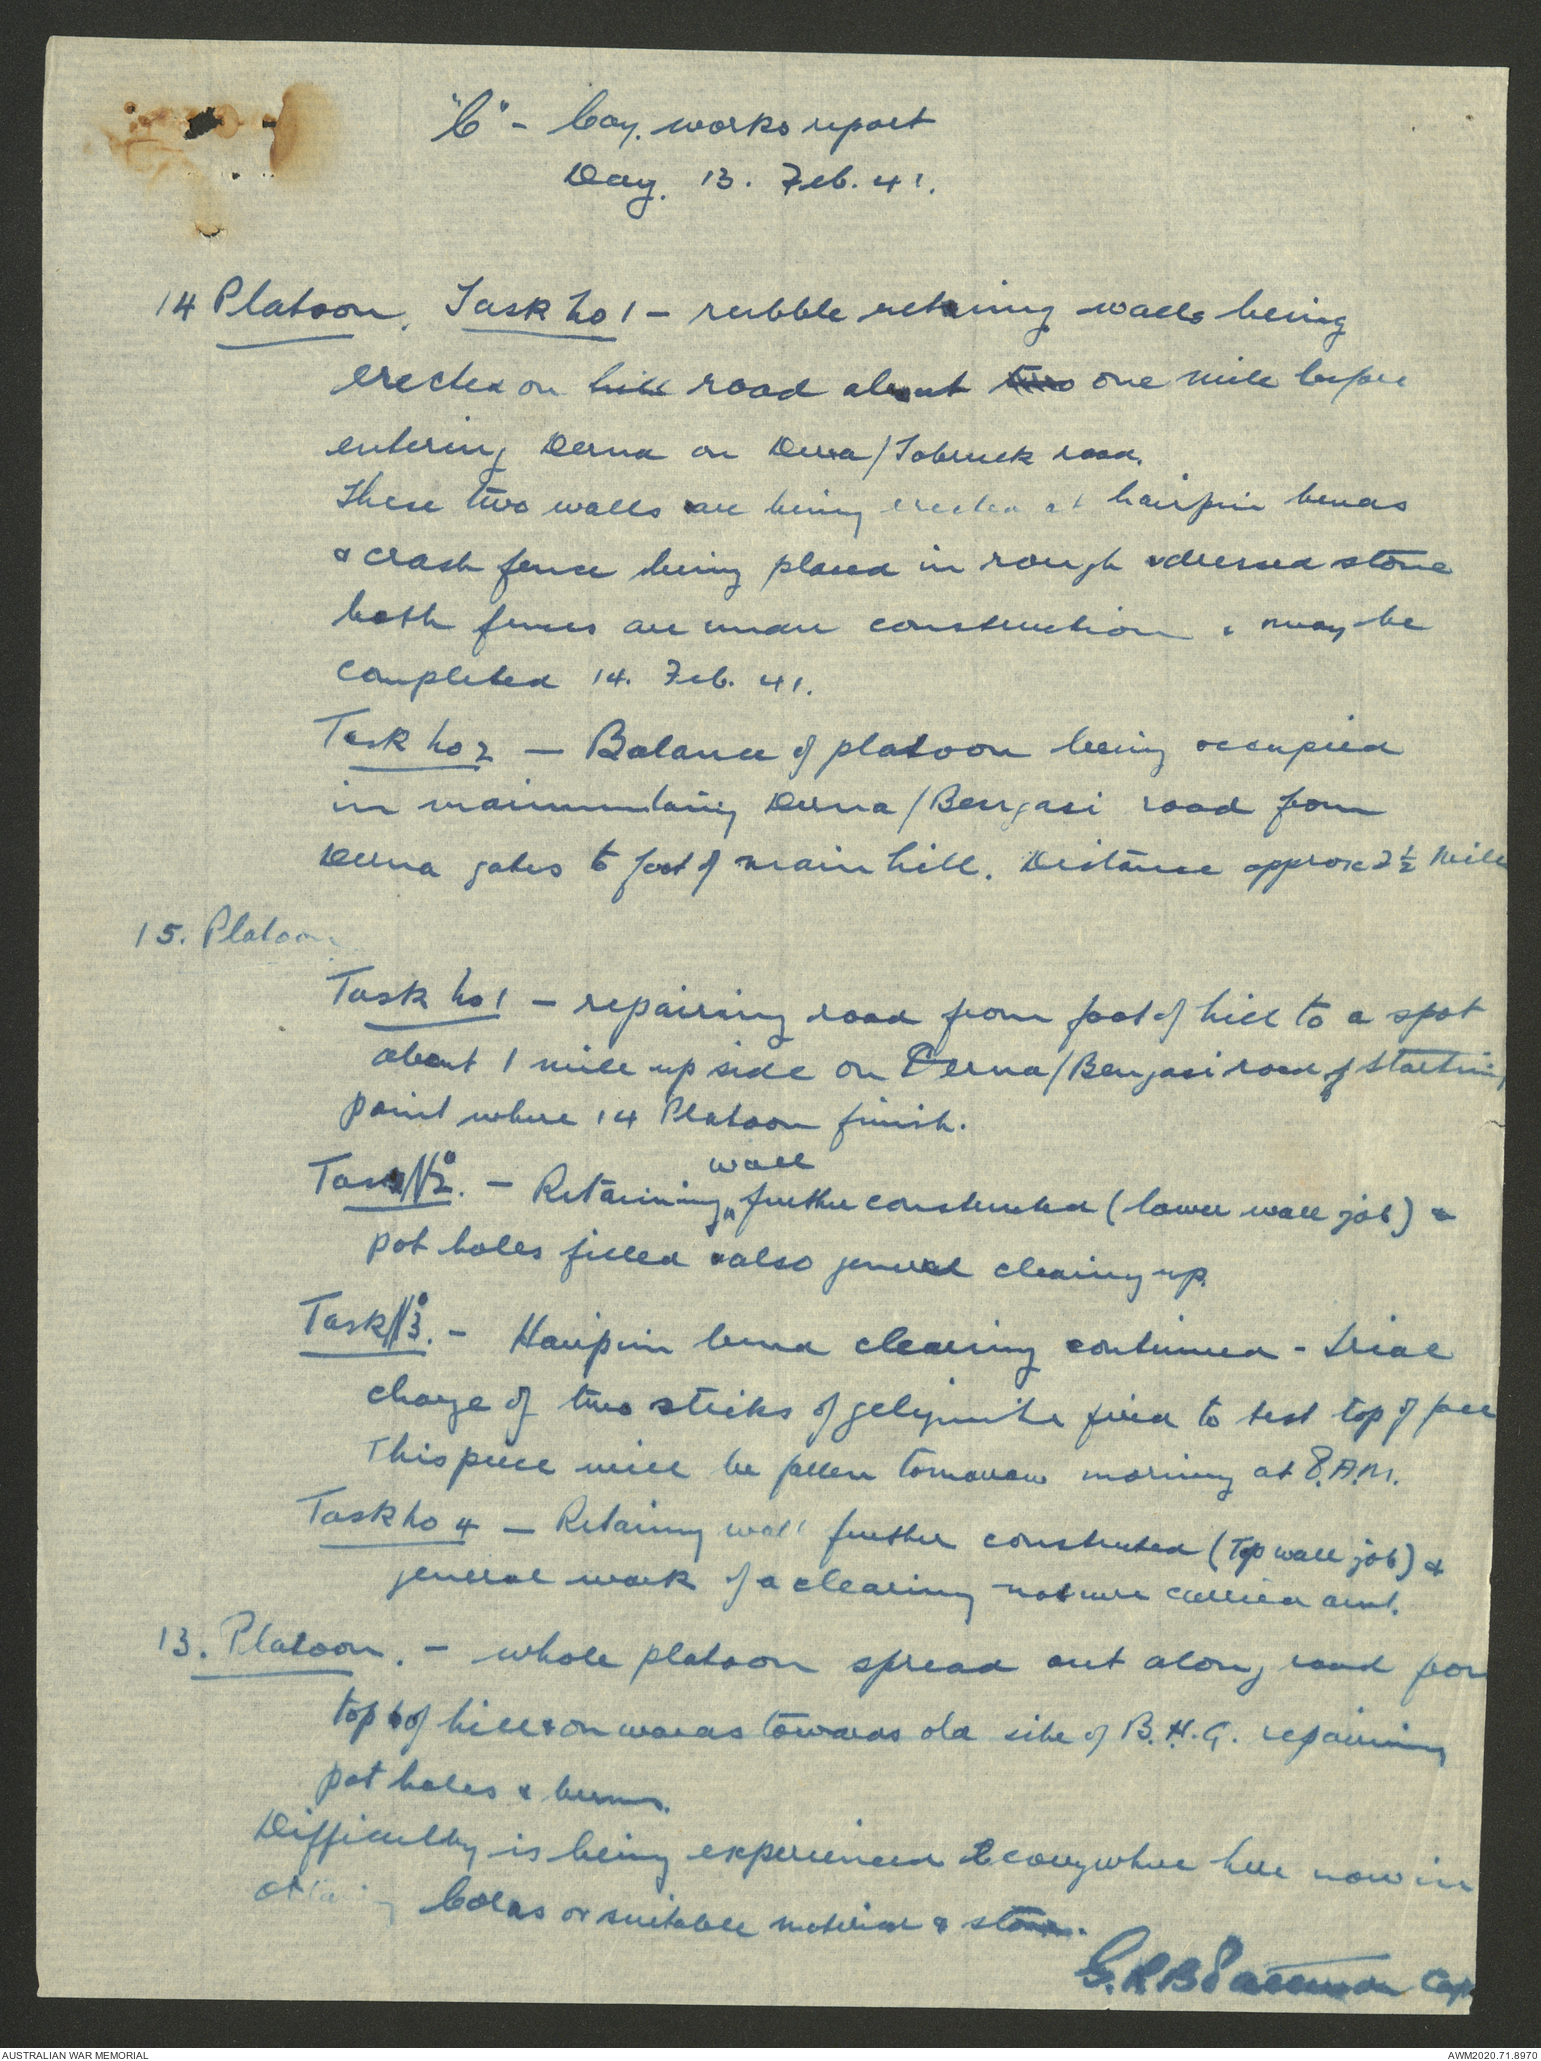 "C" - Coy. works report
Day. 13. Feb. 41.
14 Platoon. Task No 1 - rubble retaining walls being
erected on hill road about two one mile before
entering Derna on Derna/Tobruck road.
These two walls are being erected at hairpin bends
& crash fence being placed in rough & dressed stone
both fences are under construction & may be
completed 14. Feb. 41.
Task No 2 - Balance of platoon being occupied
in Derna/Bengasi road from
Derna gates to foot of main hill. Distance approx 2½ Mile
15. Platoon
Task No 1 - repairing road from foot of hill to a spot
about 1 mile up side on Derna/Bengasi road of starting
point where 14 Platoon finish.
wall
Task No 2. - Retaining further constructed (lower wall job) &
pot holes filled & also general clearing up.
Task No 3. - Hairpin bend clearing continued - trial
charge of two sticks of gelignite fired to test top of face
This piece will be fallen tomorrow morning at 8.A.M.
Task No 4 - Retaining wall further constructed (Top wall job) &
general work of a clearing nature carried out.
13. Platoon. - whole platoon spread out along road from
top of hill & onwards towards old site of B.H.Q. repairing
pot holes & berms.
Difficulty is being experienced everywhere here now in
obtaining Colas or suitable material & stone.
G.R.B Capt
AUSTRALIAN WAR MEMORIAL
AWM2020.71.8970